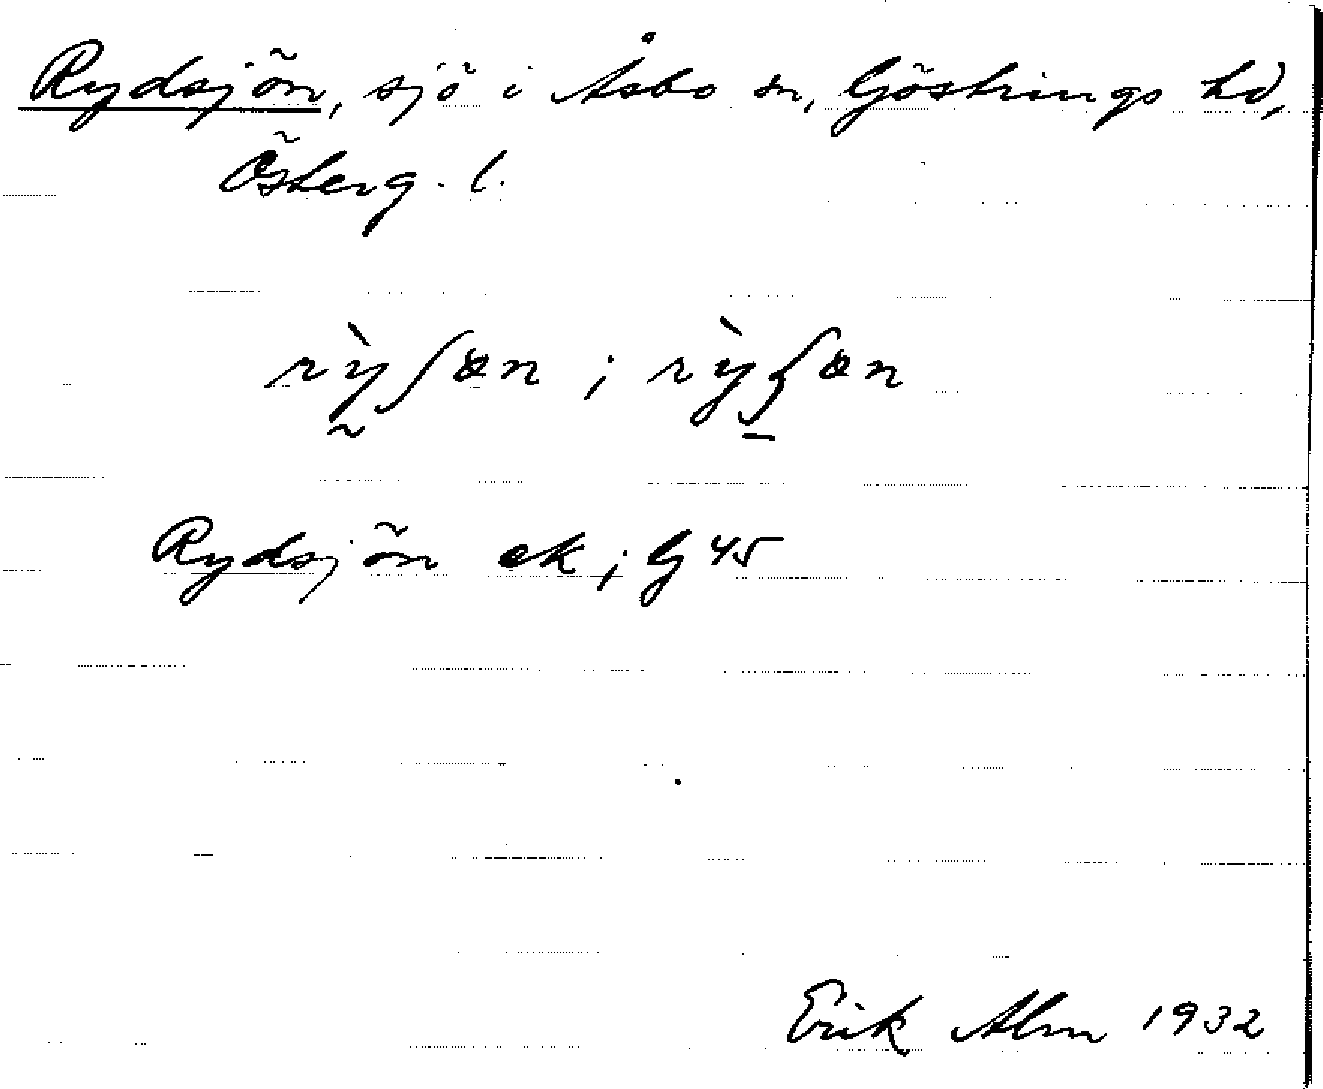 Rydsjön, sjö i Åsbo sn, Göstrings hd,
Österg. l.
rỳʃøn ; rỳʃøn
Rydsjön ek ; G 45
Erik Alm 1932